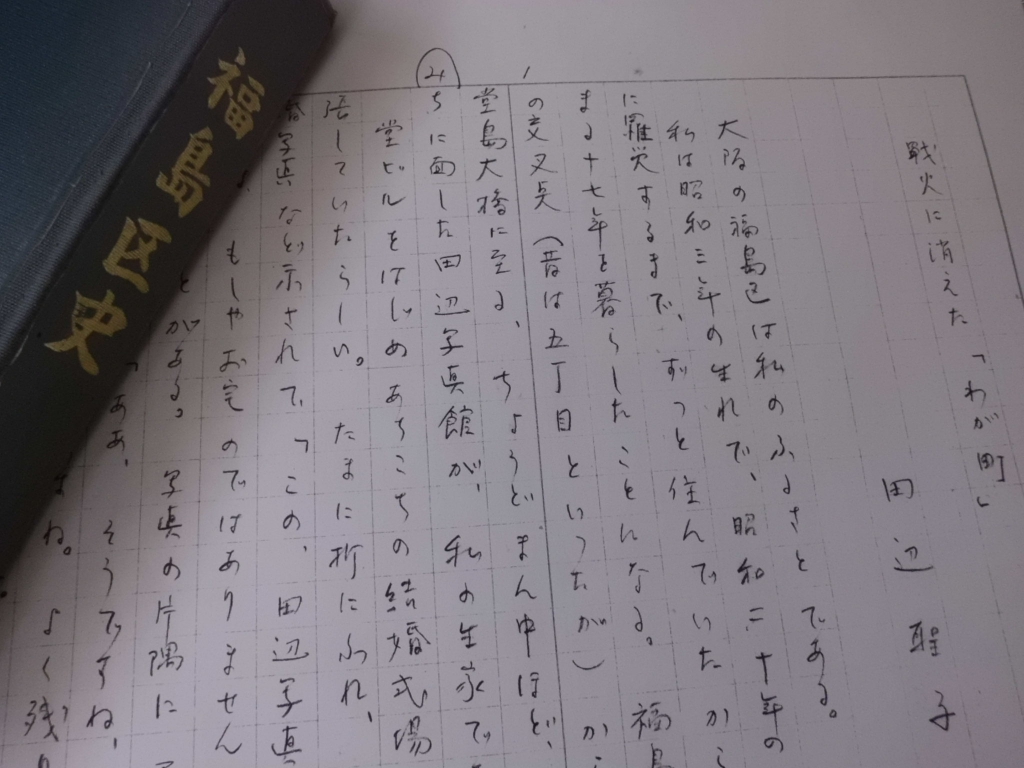 戦火に消えた「わが町」
田辺聖子
大阪の福島区は私のふるさとである。
私は昭和三年の生れで、昭和二十年の
に罹災するまで、ずっと住んでいたから
まる十七年を暮らしたことになる。福島
の交叉点(昔は五丁目といったが)か
堂島大橋に至る、ちょうどまん中ほど、
ちに面した田辺写真館が、私の生家で
堂ビルをはじめあちこちの結婚式場
していたらしい。たまに折にふれ、
写真など示されて、「この、田辺写真
もしやお宅のではありません
とがある。写真の片隅に
「ああ、そうですね、
ね。よく残り
福島区史